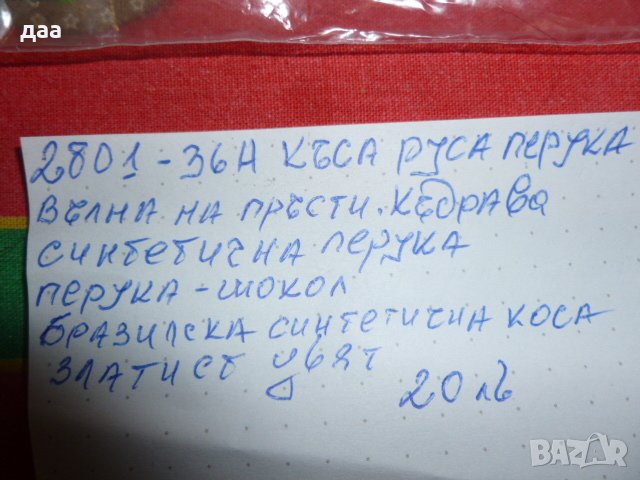 даа
2801-36А КЪСА РУСА ПЕРУКА
ВЪЛНА НА ПРЪСТИ. КЪДРАВА
СИНТЕТИЧНА ПЕРУКА
ПЕРУКА-ШОКОЛ
БРАЗИЛСКА СИНТЕТИЧНА КОСА
ЗЛАТИСТ ЦВЯТ
20 лв
BAZAR